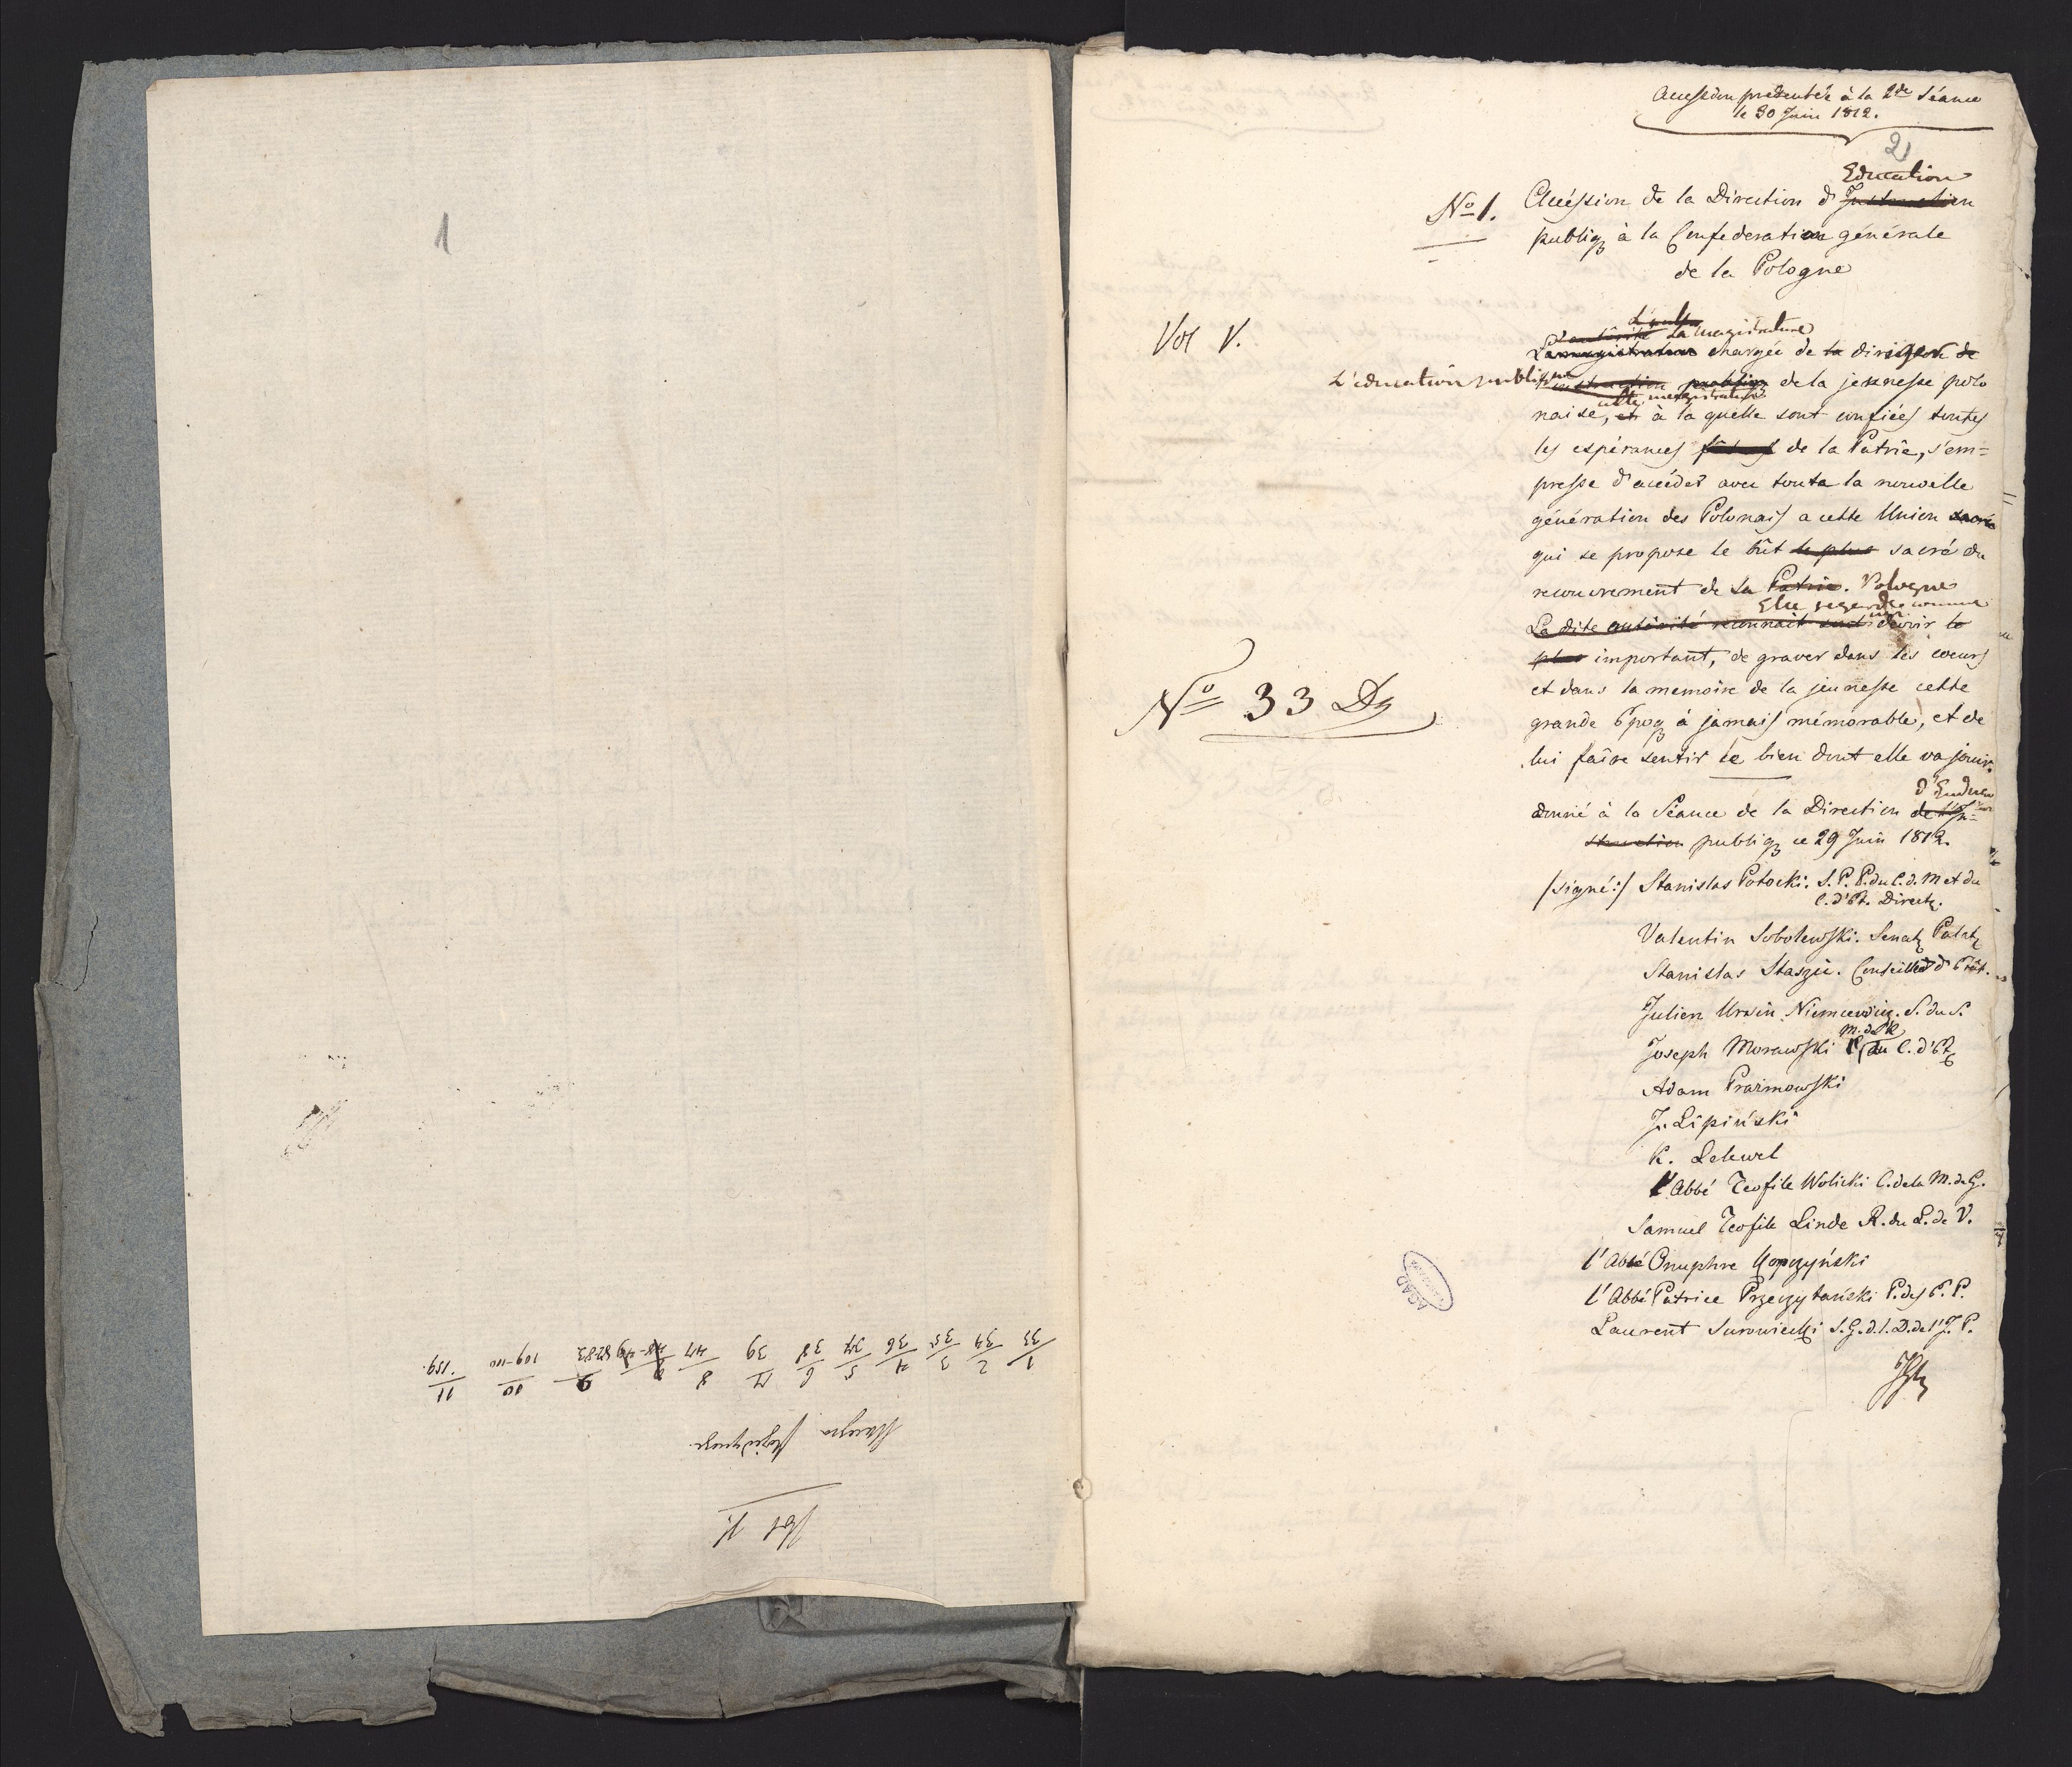 1
Vol V.
1 2 3 4 5 6 7 8 9 10 11
33 34 35 36 37 38 39 47 82-83 109-110 159.
Accession présentée à la 2de Séance
le 30 Juin 1812.
2
Education
No 1. Accéssion de la Direction d'Instruction
publiq à la Confederation générale
de la Pologne
Vol V.
L'autorité La magistrature
La magistrature chargée de la diriger de
L'education publique instruction publiq de la jeunesse polo
cette magistrature
naise, et à la quelle sont confiées toutes
les espérances de la Patrie, s'em=
presse d'accéder avec toute la nouvelle
génération des Polonais a cette Union sacrée
qui se propose le bût le plus sacré du
recouvrement de la Patrie. Pologne
Elle regarde comme
La dite autorité reconnait devoir le
plus important, de graver dans les coeurs
et dans la memoire de la jeunesse cette
No 33 Dz
grande Epoq à jamais mémorable, et de
lui faire sentir le bien dont elle va jouir.
donné à la Séance de la Direction de l'In=
struction publiq ce 29 Juin 1812.
/signé:/ Stanislas Potocki. S. P. P. du C. d. M et du
C. d'Et. Direct.
Valentin Sobolewski. Senat Palat
Stanislas Staszic. Conseiller d'Etat.
Julien Ursin Niemcewicz. S. du S.
Joseph Morawski M. d. R du C. d'Et
Adam Prażmowski
J. Lipiński
K. Lelewel
l'Abbé Teofile Wolicki C. de la M. d. G.
Samuel Teofile Linde R. du L. de V.
l'Abbé Onuphre Kopczyński
l'Abbé Patrice Przeczytański P. des E. P.
Laurent Surowiecki S. G. d. l. D. de l'I. P.
AGAD